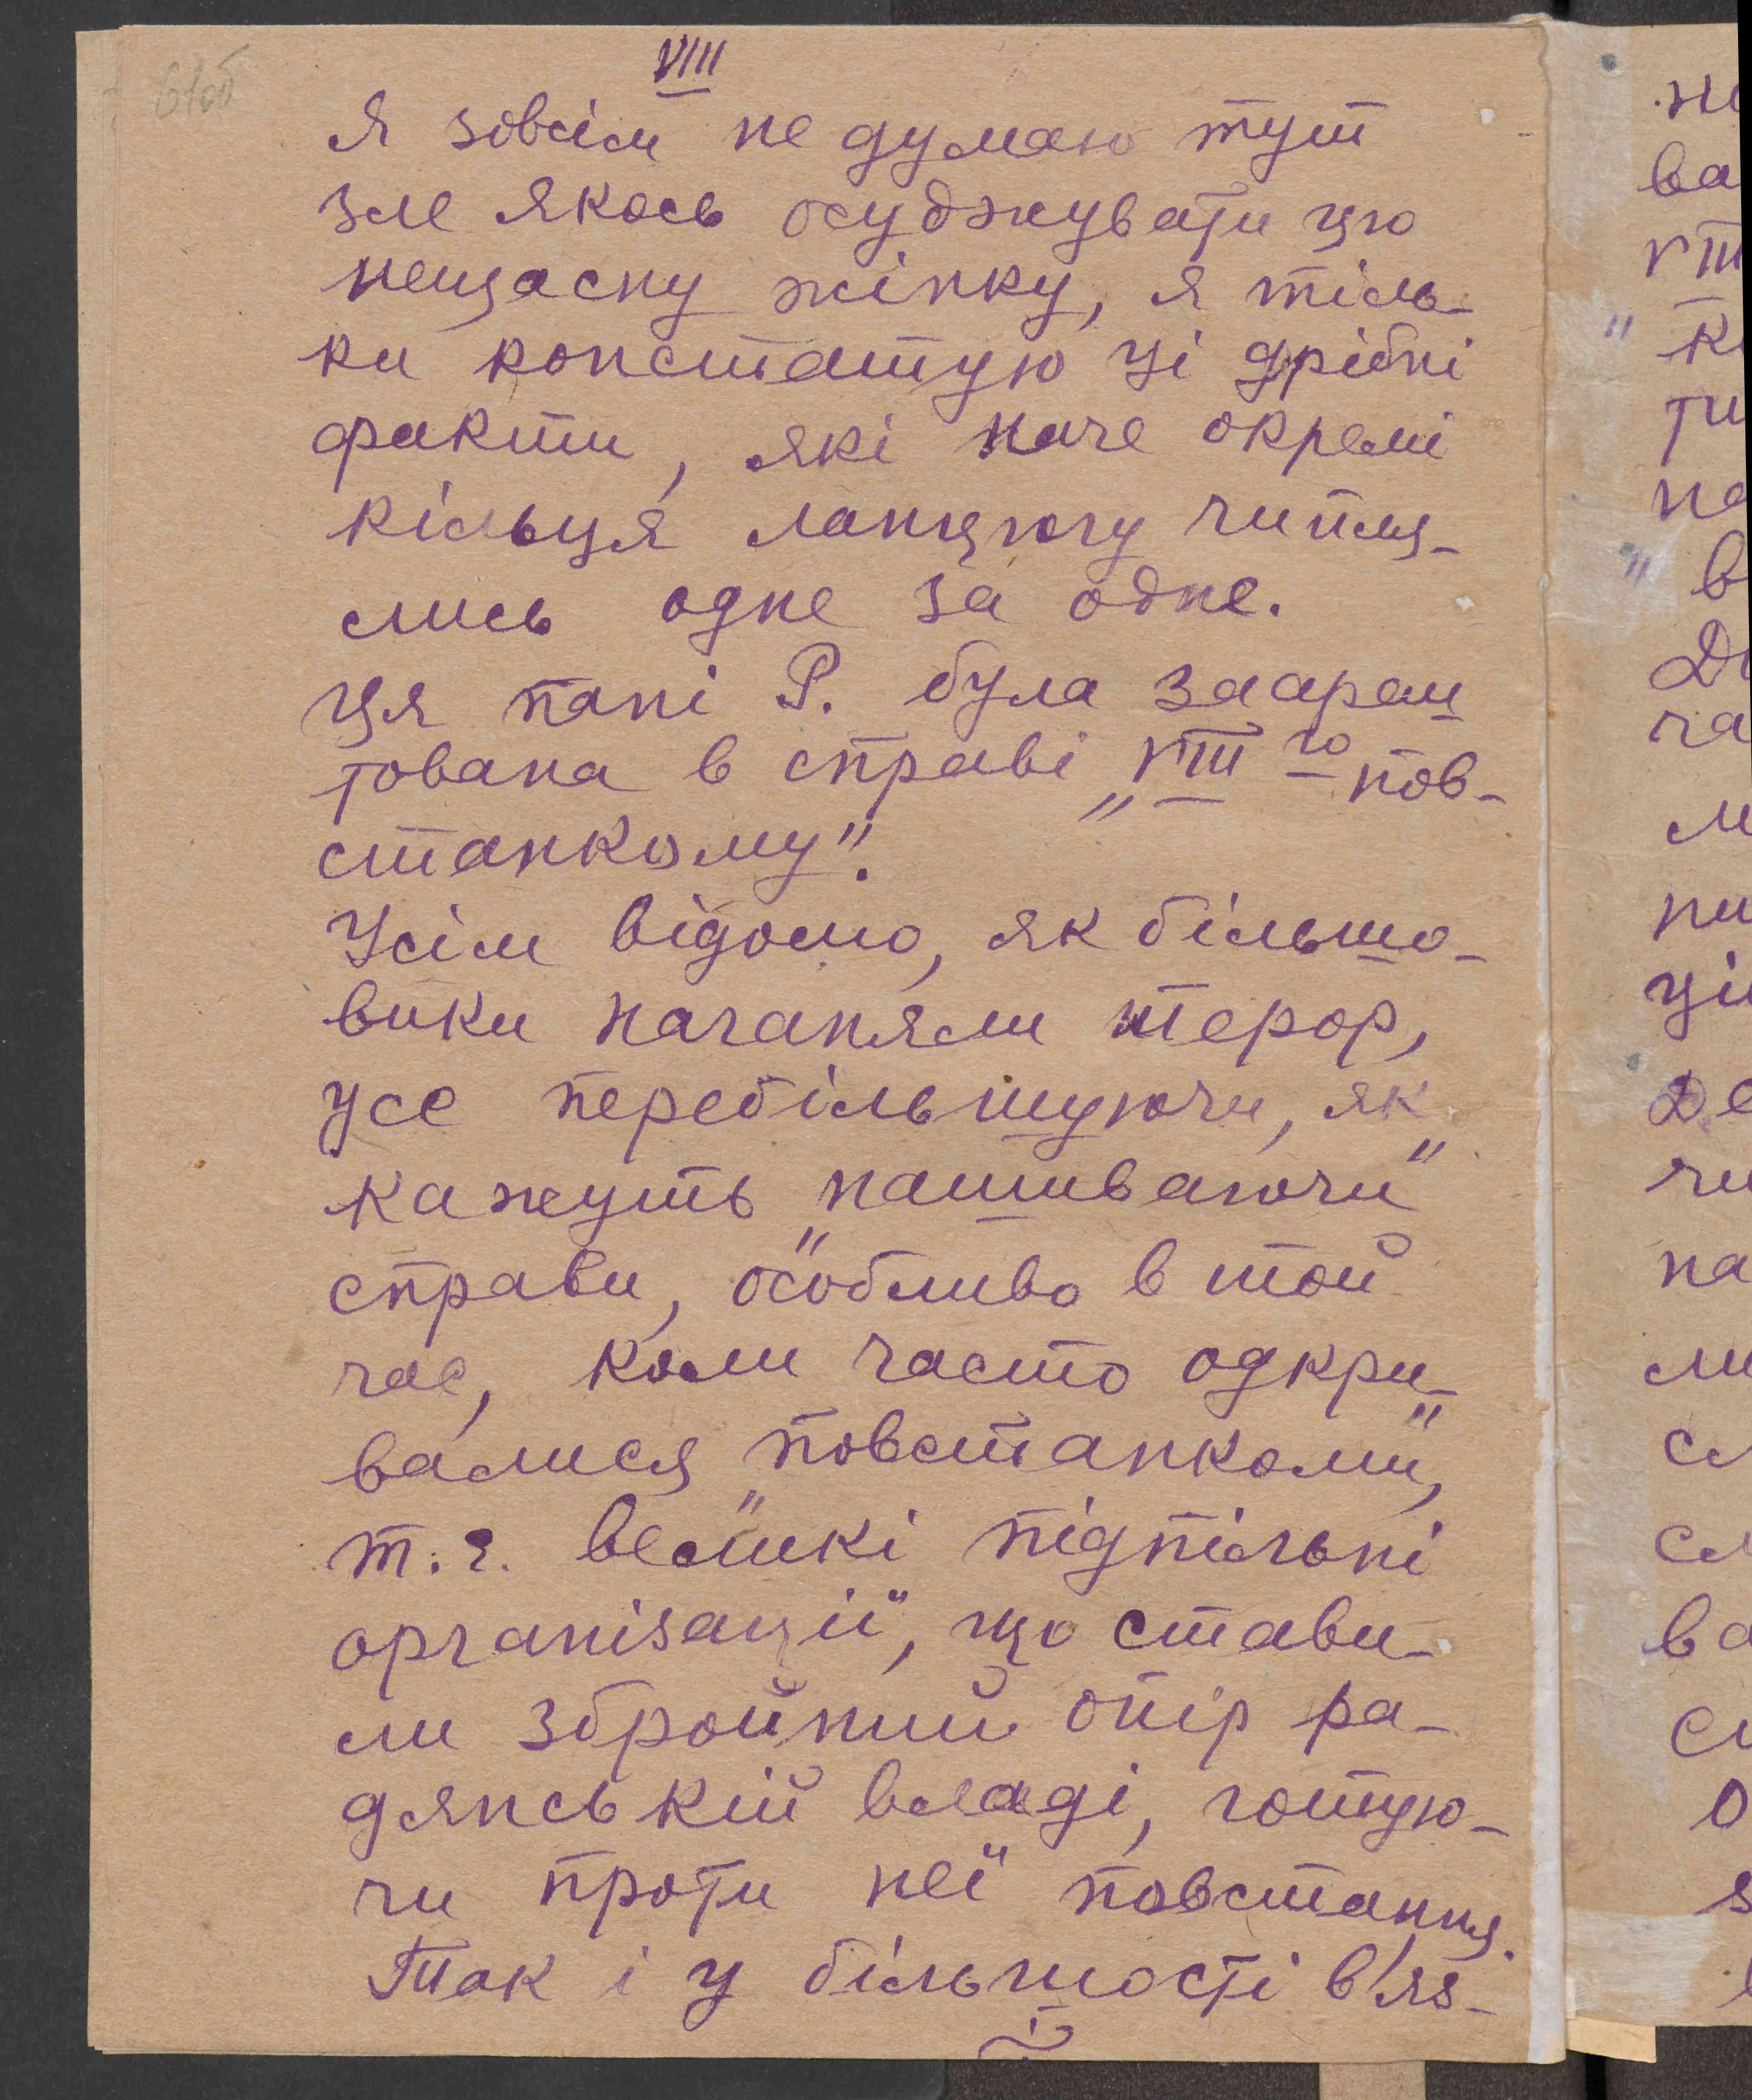 61об
VIII
Я зовсім не думаю тут
зле якось осуджувати цю
нещасну жінку, я тіль-
ки констатую ці дрібні
факти, які наче окремі
кільця ланцюгу чипля-
лись одне за одне.
Ця пані Р. була заареш
тована в справі „VIII го пов-
станкому".
Усім відомо, як більшо-
вики наганяли терор,
усе перебільшуючи, як
кажуть „пашиваючи"
справи, особливо в той
час, коли часто одкри-
валися „повстанкоми",
т. є. великі підпільні
організації, що стави-
ли збройний опір ра-
дянській владі, готую-
чи проти неї повстання.
Так і у більшости в'яз-